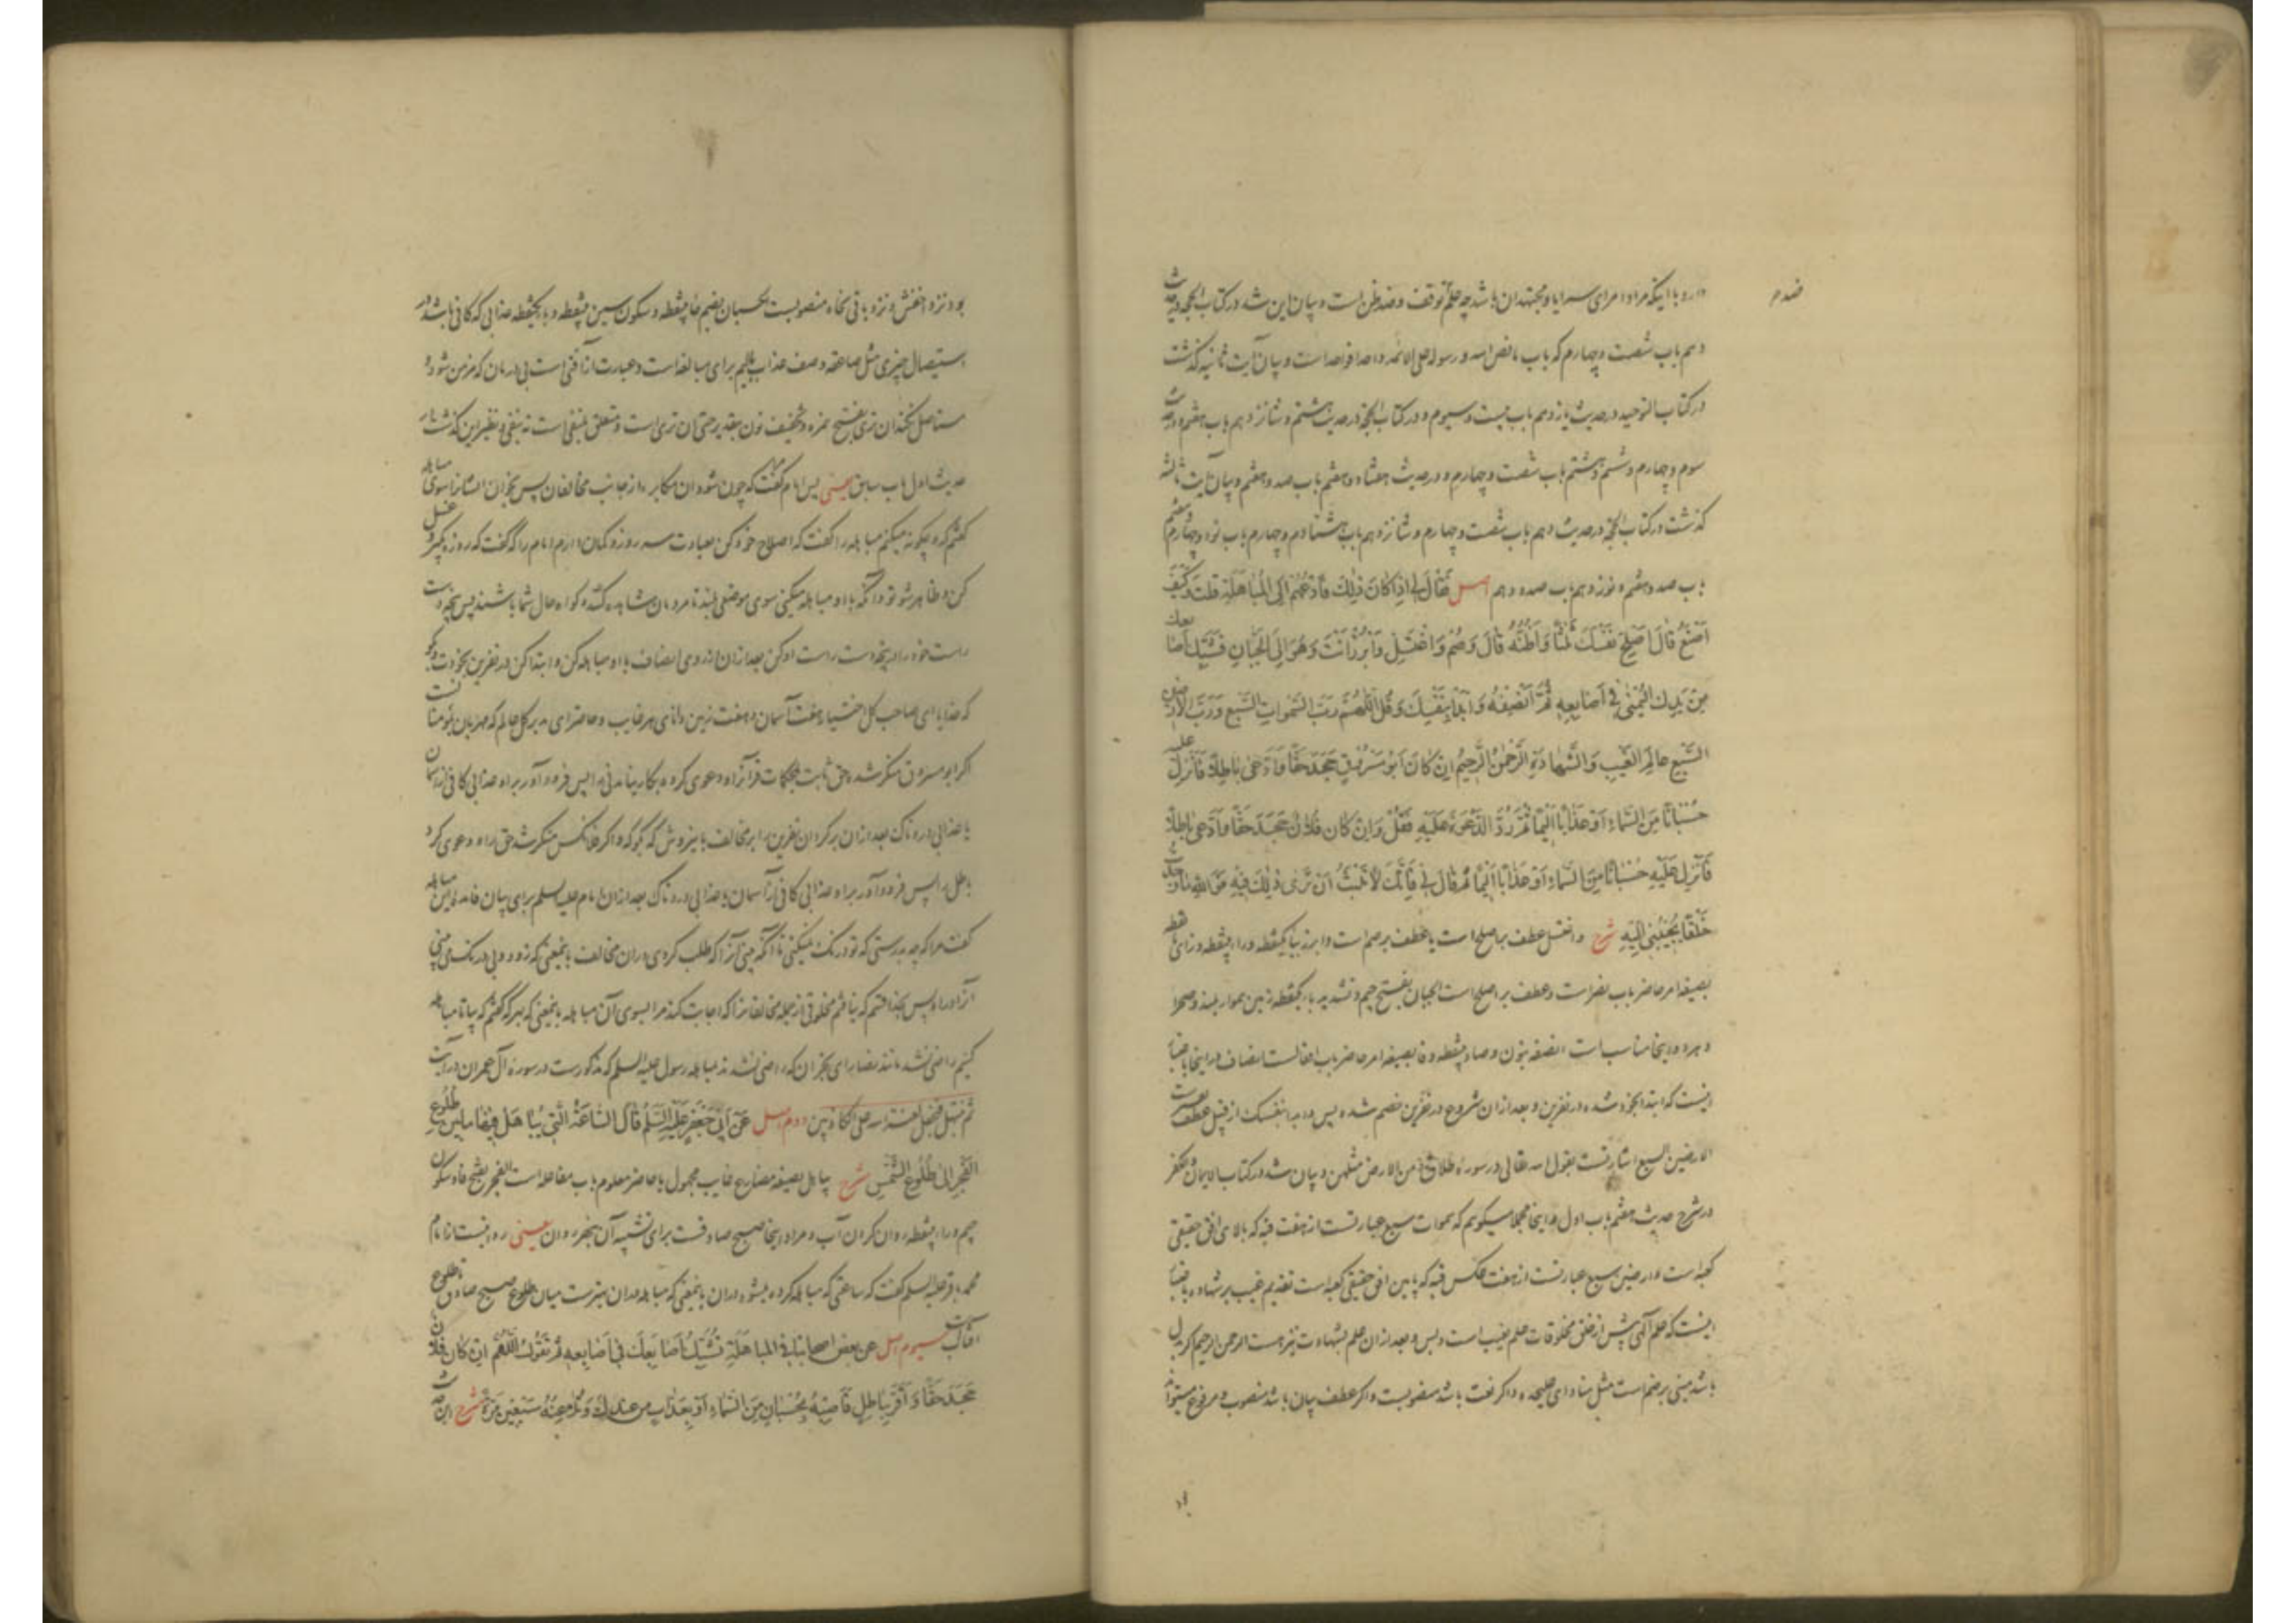 دارد با اینکه مراد امرای سرایا و مجتهدان باشد چه علم توقف و ضد ظن است و بیان این شد در کتاب الحجه در حدیث
دهم باب شصت و چهارم که باب ما نص الله و رسوله علی الائمه واحدا فواحدا است و بیان آیت ثانیه گذشت
در کتاب التوحید در حدیث یازدهم باب بیست و سیوم و در کتاب الحجة در حدیث هشتم و شانزدهم باب هفتم و در حدیث
سوم و چهارم و ششم و هشتم باب شصت و چهارم و در حدیث هفتاد و هفتم باب صد و هفتم و بیان آیت ثالثه
گذشت در کتاب الحجة در حدیث دهم باب شصت و چهارم و شانزدهم باب هشتادم و چهارم باب نود و چهارم و هفتم
باب صد و هفتم و نوزدهم باب صد و دهم اصل فَقَالَ لِي اِذَا كَانَ ذٰلِكَ فَادْعُهُمْ اِلَى الْمُبَاهَلَةِ قُلْتُ وَكَيْفَ
اَصْنَعُ قَالَ اَصْلِحْ نَفْسَكَ ثَلٰثًا وَاَظُنُّهُ قَالَ وَصُمْ وَاغْتَسِلْ وَابْرُزْ اَنْتَ وَهُوَ اِلَى الْجَبَّانِ فَشَبِّكْ اَصَابِعَكَ
مِنْ يَدِكَ الْيُمْنٰى فِي اَصَابِعِهِ ثُمَّ اَنْصِفْهُ وَابْدَأْ بِنَفْسِكَ وَقُلِ اللّٰهُمَّ رَبَّ السَّمٰوَاتِ السَّبْعِ وَرَبَّ الْاَرَضِينَ
السَّبْعِ عَالِمَ الْغَيْبِ وَالشَّهَادَةِ الرَّحْمٰنُ الرَّحِيمُ اِنْ كَانَ اَبُو مَسْرُوقٍ جَحَدَ حَقًّا وَادَّعٰى بَاطِلًا فَاَنْزِلْ عَلَيْهِ
حُسْبَانًا مِنَ السَّمَاءِ اَوْ عَذَابًا اَلِيمًا ثُمَّ رُدَّ الدَّعْوَةَ عَلَيْهِ فَقُلْ وَاِنْ كَانَ فُلَانٌ جَحَدَ حَقًّا وَادَّعٰى بَاطِلًا
فَاَنْزِلْ عَلَيْهِ حُسْبَانًا مِنَ السَّمَاءِ اَوْ عَذَابًا اَلِيمًا ثُمَّ قَالَ لِي فَاِنَّكَ لَا تَلْبَثُ اَنْ تَرٰى ذٰلِكَ فِيهِ فَوَاللّٰهِ مَا وَجَدْتُ
خَلْقًا يُجِيبُنِي اِلَيْهِ شرح و اغتسل عطف بر اصلح است یا عطف بر صم است و ابرز ببا یکنقطه و راء بینقطه و زای نقطه
بصیغه امر حاضر باب نصر است و عطف بر اصلح است الجبان بفتح جیم و تشدید باء یکنقطه زمین هموار بلند و صحرا
و هر دو اینجا مناسب است انصفه بنون و صاد بینقطه و فا بصیغه امر حاضر باب افعالست انصاف در اینجا باعتبار
اینست که ابتدا بخود شده در نفرین و بعد از آن شروع در نفرین خصم شده پس و ابدا بنفسک از قبیل عطف
الارضین السبع اشارتست بقول الله تعالی در سورهٔ طلاق و من الارض مثلهن و بیان شد در کتاب الایمان و الکفر
در شرح حدیث هفتم باب اول و اینجا مجملا میگویم که سموات سبع عبارتست از هفت قبه که بالای افق حقیقی
کعبه است و ارضین سبع عبارتست از هفت عکس قبه که پایین افق حقیقی کعبه است تقدیم غیب بر شهاده باعتبار
اینست که علم الهی پیش از خلق مخلوقات علم بغیب است و بس و بعد از آن علم بشهادت نیز هست الرحمن الرحیم اگر بدل
باشد مبنی بر ضم است مثل منادای علیحده و اگر نعت باشد منصوبست و اگر عطف بیان باشد منصوب و مرفوع میتواند
بود نزد اخفش و نزد باقی نحاه منصوبست حسبان بضم حاء بینقطه و سکون سین بینقطه و باء یکنقطه عذابی که کافی باشد در
استیصال چیزی مثل صاعقه وصف عذاب بالیم برای مبالغه است و عبارت از آفتی است بی درمان که مزمن شود و
مستاصل نکند ان تری بفتح همزه و تخفیف نون بتقدیر حتی ان تری است و متعلق بمنفی است نه بنفی و نظیر این گذشت در
حدیث اول باب سابق یعنی پس امام مرا گفت که چون شود آن مکابره از جانب مخالفان پس بخوان ایشانرا سوی مباهله
گفتم که و چگونه میکنم مباهله را گفت که اصلاح خود کن بعبادت سه روز و گمان دارم امام را که گفت که روزه بگیر و غسل
کن و ظاهر شو تو و آنکه با او مباهله میکنی سوی موضعی بلند تا مردمان مشاهده کنند و گواه حال شما باشند پس پنجه دست
راست خود را در پنجه دست راست او کن بعد از آن از روی انصاف با او مباهله کن و ابتدا کن در نفرین بخودت و بگو
که خدایا ای صاحب کل اختیار هفت آسمان و هفت زمین دانای هر غایب و حاضر ای مدبر کل عالم که مهربان بمؤمنانست
اگر ابو مسروق منکر شده حقی ثابت بمحکمات قرآنرا و دعوی کرده بمکابره باطلی را پس فرود آور بر او عذابی کافی از آسمان
یا عذابی دردناک بعد از آن برگردان نفرین را بر مخالف باینروش که بگو که و اگر فلانکس منکر شد حق را و دعوی کرد
باطل را پس فرود آور بر او عذابی کافی از آسمان یا عذابی دردناک بعد از آن امام علیه السلم برای بیان فایده این مباهله
گفت مرا که چه بدرستی که تو درنگ نمیکنی تا آنکه بینی آنرا که طلب کردی در آن مخالف باینمعنی که زود و بی درنگ می بینی
آنرا در او پس بخدا قسم که نیافتم مخلوقی از جمله مخالفانرا که اجابت کند مرا بسوی آن مباهله باینمعنی که بهر که گفتم که بیا تا مباهله
کنیم راضی نشد مانند نصارای نجران که راضی نشدند مباهله رسول علیه السلم که مذکورست در سورهٔ آل عمران در آیت
ثم نبتهل فنجعل لعنة الله علی الکاذبین دوم اصل عَنْ اَبِي جَعْفَرٍ عَلَيْهِ السَّلَمُ قَالَ السَّاعَةُ الَّتِي يُبَاهَلُ فِيهَا مَا بَيْنَ طُلُوعِ
الْفَجْرِ اِلٰى طُلُوعِ الشَّمْسِ شرح یباهل بصیغه مضارع غایب مجهول یا حاضر معلوم باب مفاعله است الفجر بفتح فاء و سکون
جیم و راء بینقطه روان کردن آب و مراد اینجا صبح صادقست برای تشبیه آن بنهر روان یعنی روایتست از امام
محمد باقر علیه السلم گفت که ساعتی که مباهله کرده میشود در آن باینمعنی که مباهله در آن بهترست میان طلوع صبح صادق تا طلوع
آفتابست سیوم اصل عن بعض اصحابنا فی المباهلة تُشَبِّكُ اَصَابِعَكَ فِي اَصَابِعِهِ ثُمَّ تَقُولُ اللّٰهُمَّ اِنْ كَانَ فُلَانٌ
جَحَدَ حَقًّا وَاَقَرَّ بِبَاطِلٍ فَاَصِبْهُ بِحُسْبَانٍ مِنَ السَّمَاءِ اَوْ بِعَذَابٍ مِنْ عِنْدِكَ وَتُلَاعِنُهُ سَبْعِينَ مَرَّةً شرح این حدیث